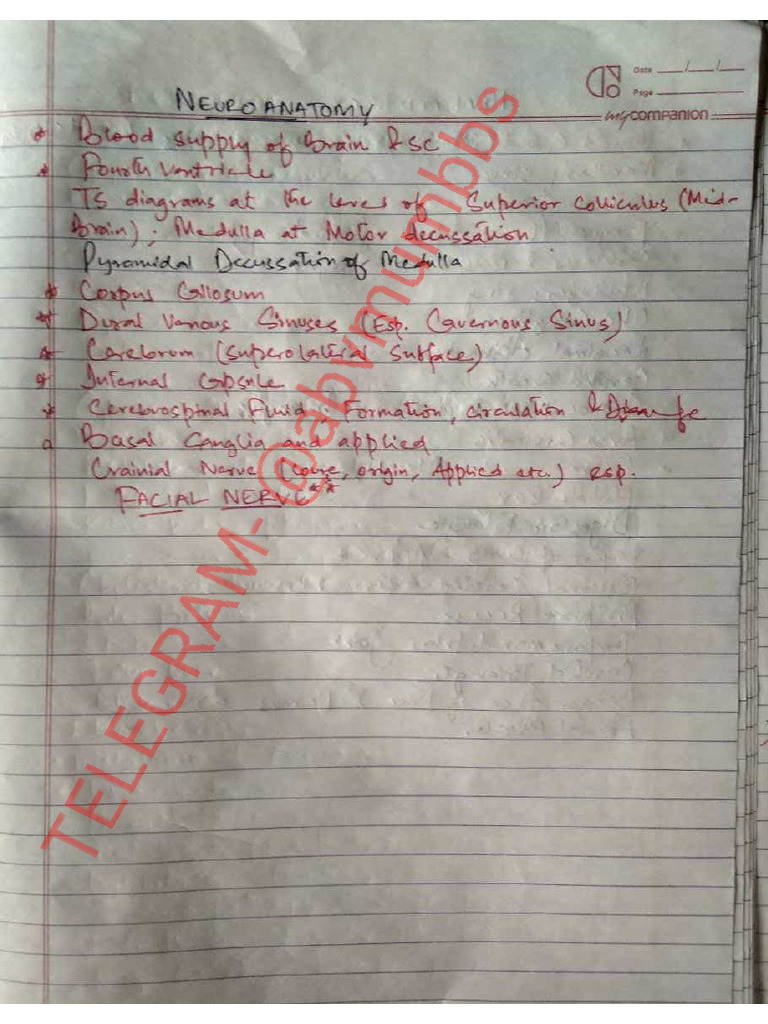 Date __/__/__
Page
mycompanion
NEUROANATOMY
* Blood supply of brain & SC
* Fourth Ventricle
TS diagrams at the level of Superior colliculus (Mid-
Brain); Medulla at Motor decussation
Pyramidal Decussation of Medulla
* Corpus Callosum
* Dural Venous Sinuses (Esp. Cavernous Sinus)
* Cerebrum (Superolateral Surface)
* Internal Capsule
* Cerebrospinal Fluid: Formation, circulation &
Basal Ganglia and applied
Crainial Nerve (Course, origin, Applied etc.) esp.
FACIAL NERVE**
TELEGRAM-@abvmumbbs